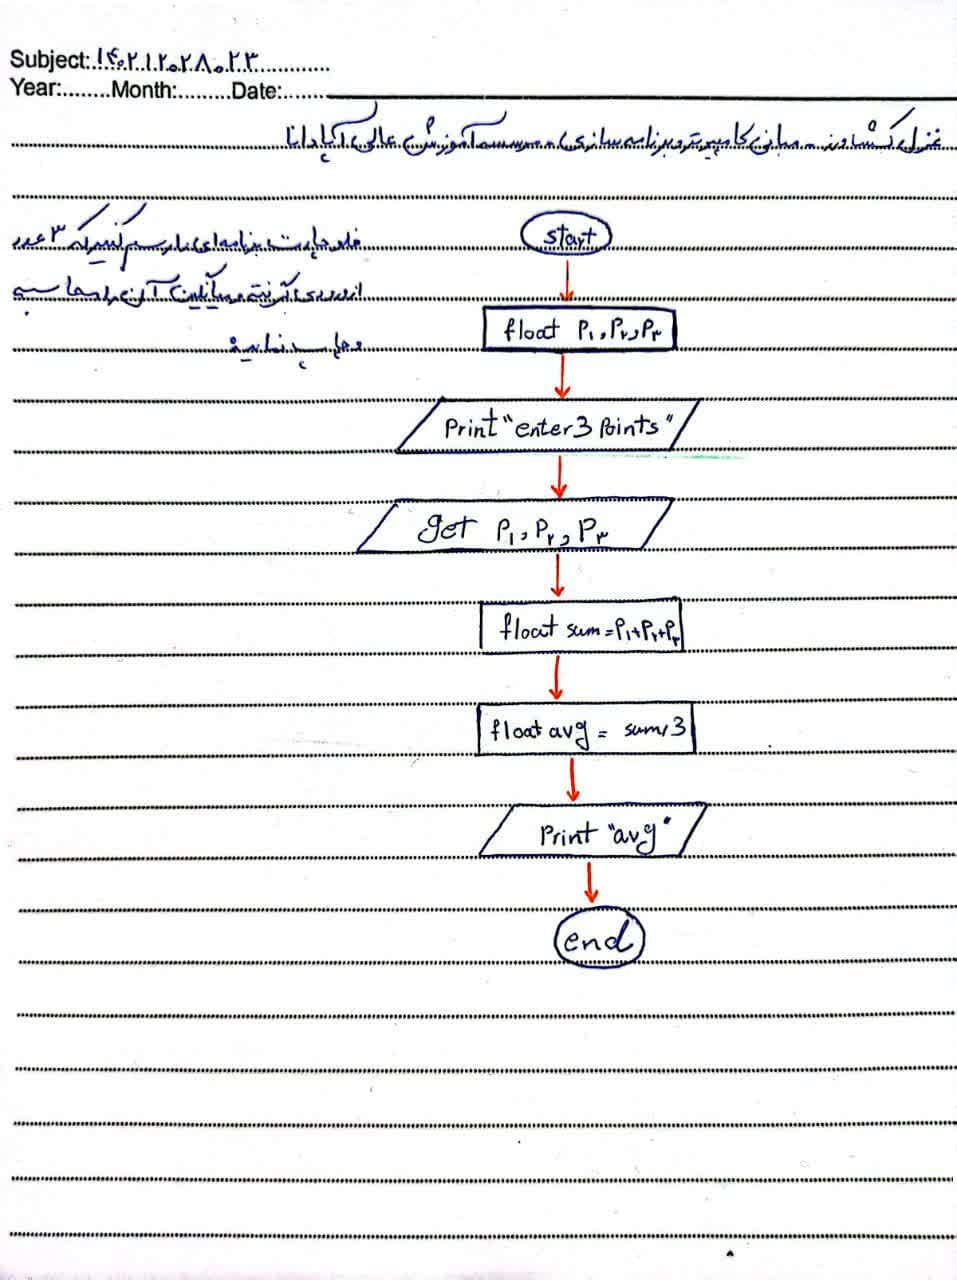 Subject: ۱۴۰۲۱۲۰۲۸۰۲۳
Year:........Month:........Date:......
غزل کشاورز - مبانی کامپیوتر و برنامه سازی - موسسه آموزش عالی آپادانا
فلوچارت برنامه‌ای را رسم کنید که ۳ عدد
از ورودی گرفته و میانگین آن را محاسبه
و چاپ نماید
start
float P۱,P۲,P۳
Print "enter 3 Points"
get P۱,P۲,P۳
float sum=P۱+P۲+P۳
float avg = sum/3
Print "avg"
end